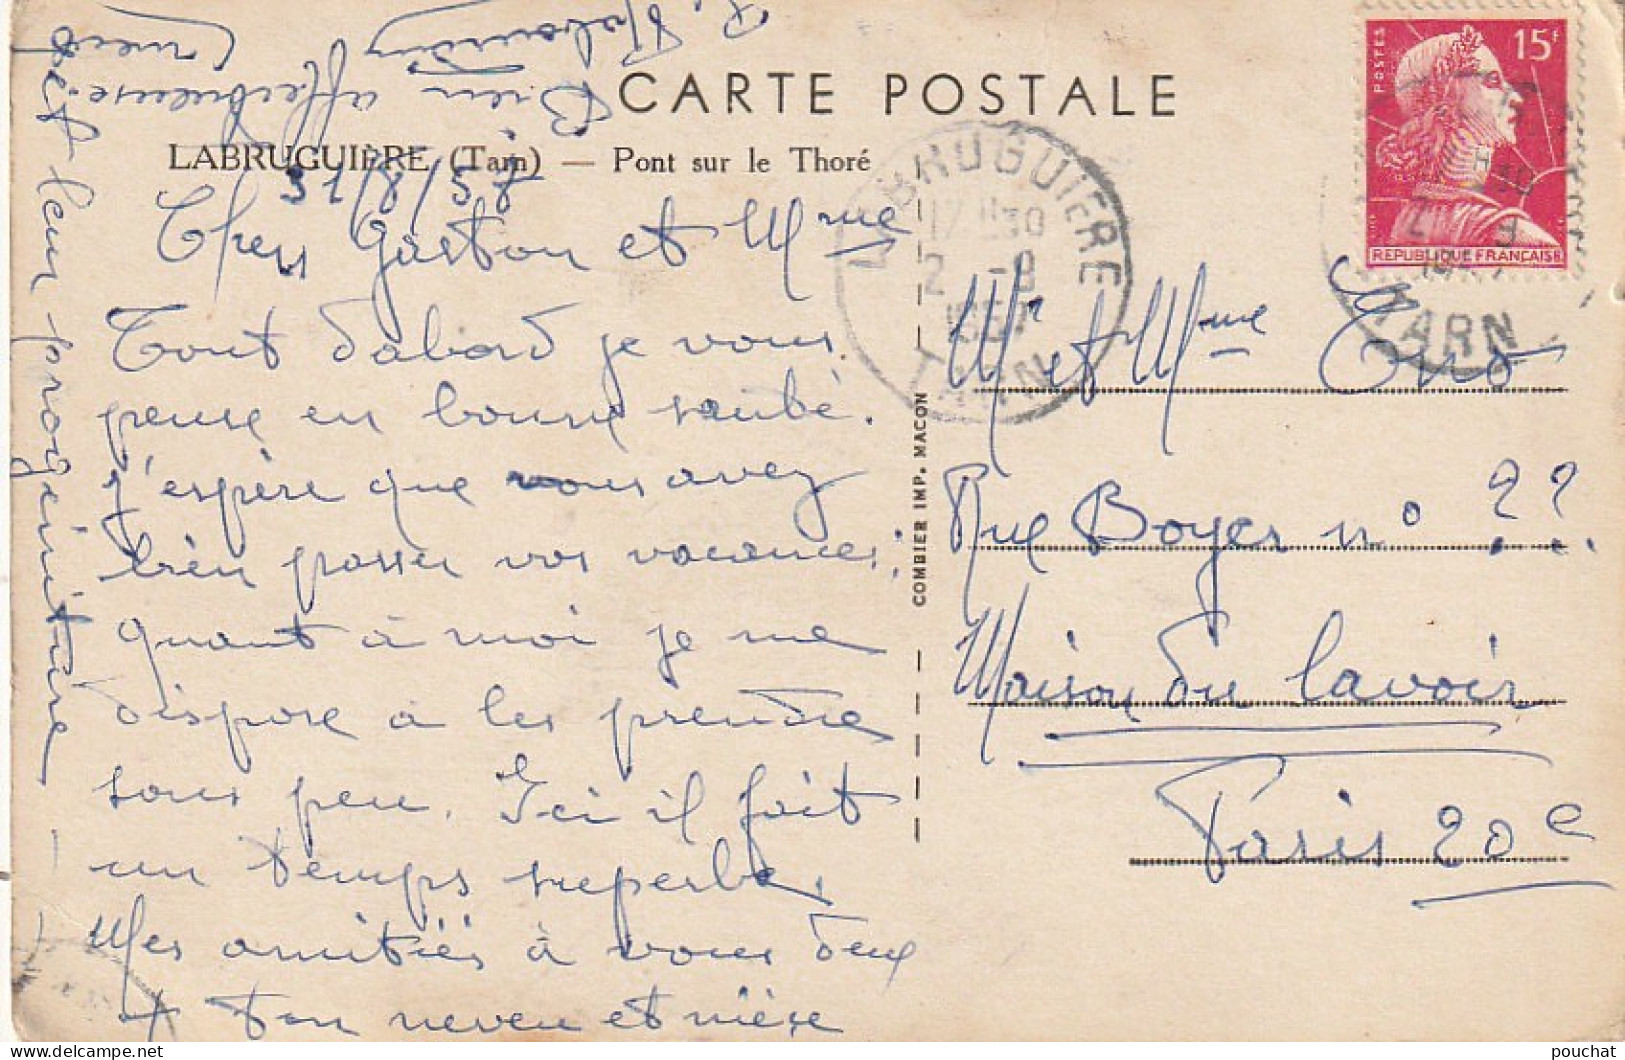 CARTE POSTALE
LABRUGUIÈRE (Tarn) — Pont sur le Thoré
31/8/57
Chers Gaston et Mme
Tout d'abord je vous
pense en bonne santé.
j'espère que vous avez
bien passer vos vacances;
quant à moi je me
dispose à les prendre
sous peu. Ici il fait
un temps superbe.
Mes amitiés à vous deux
+ ton neveu et nièce
et leur progéniture
Bien affectueusement
R.
COMBIER IMP. MACON
POSTES
15F
REPUBLIQUE FRANÇAISE
LABRUGUIERE
17H30
2 -9
1957
TARN
TARN
Mr et Mme
Rue Boyer no ??
Maison du lavoir
Paris 20e
pouchat